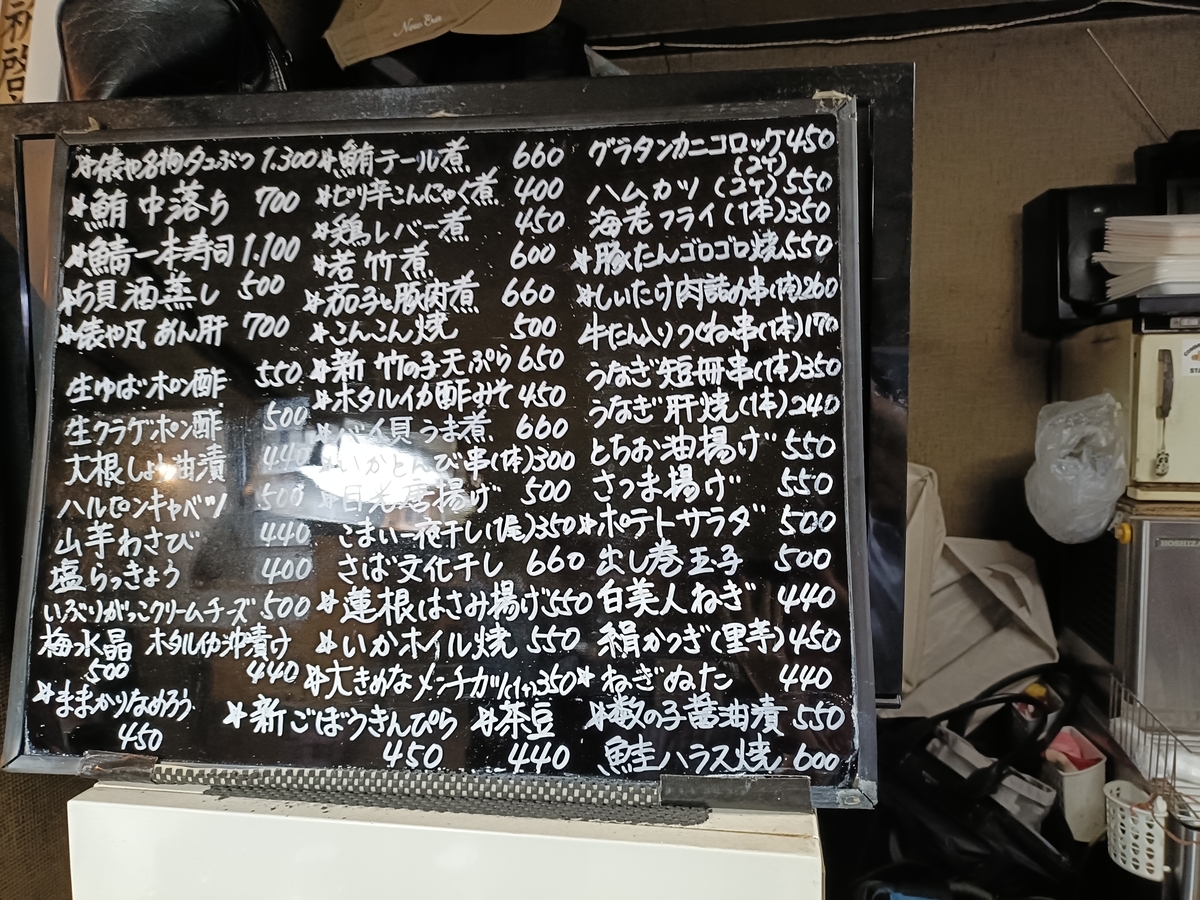 New Era
*俵や名物タコぶつ 1.300
*鮪中落ち 700
*鯖一本寿司 1.100
貝酒蒸し 500
*俵や凡 あん肝 700
生ゆばポン酢 550
生クラゲポン酢 500
大根しょう油漬 440
ハルピンキャベツ 500
山芋わさび 440
塩らっきょう 400
いぶりがっこクリームチーズ 500
梅水晶 500
ホタルイカ沖漬け 440
*ままかりなめろう 450
*鮪テール煮 660
*ピリ辛こんにゃく煮 400
*鶏レバー煮 450
*若竹煮 600
*茄子と豚肉煮 660
*こんこん焼 500
*新竹の子天ぷら 650
*ホタルイカ酢みそ 450
*バイ貝うま煮 660
*いかとんび串(1本)300
*目光唐揚げ 500
こまい一夜干し(1尾)350
さば文化干し 660
*蓮根はさみ揚げ 550
*いかホイル焼 550
*大きめなメンチカツ(1ケ)350
*新ごぼうきんぴら 450
*茶豆 440
グラタンカニコロッケ(2ケ) 450
ハムカツ(2ケ)550
海老フライ(1本)350
*豚たんゴロゴロ焼 550
*しいたけ肉詰め串(1本)260
牛たん入りつくね串(1本)170
うなぎ短冊串(1本)350
うなぎ肝焼(1本)240
とちお油揚げ 550
さつま揚げ 550
*ポテトサラダ 500
出し巻玉子 500
白美人ねぎ 440
絹かつぎ(里芋)450
*ねぎぬた 440
*数の子醤油漬 550
鮭ハラス焼 600
HOSHIZA